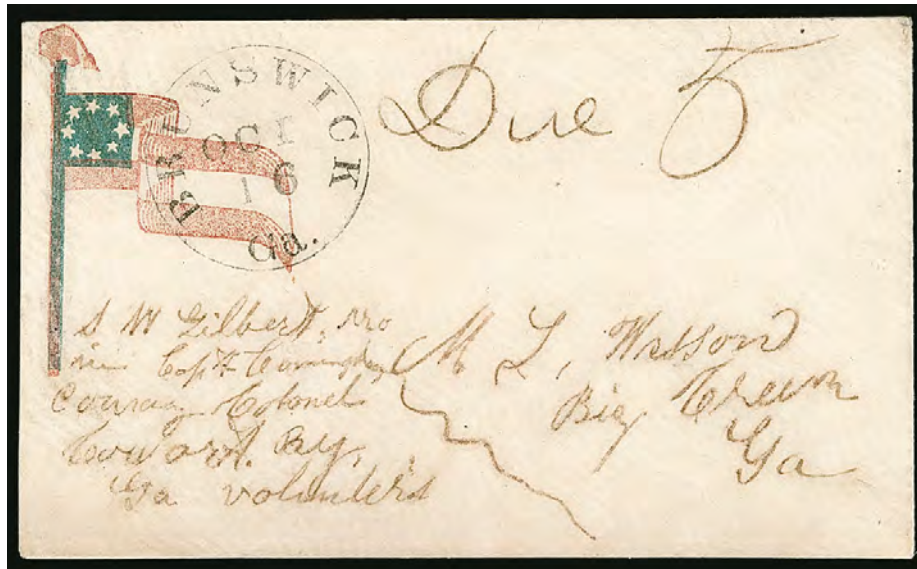 BRUNSWICK
OCT
16
Ga.
Due 5
S W Gilbert,
in Capt Cuningham
Company Colonel
Reg,
Ga volunters
M L,
Big Creek
Ga